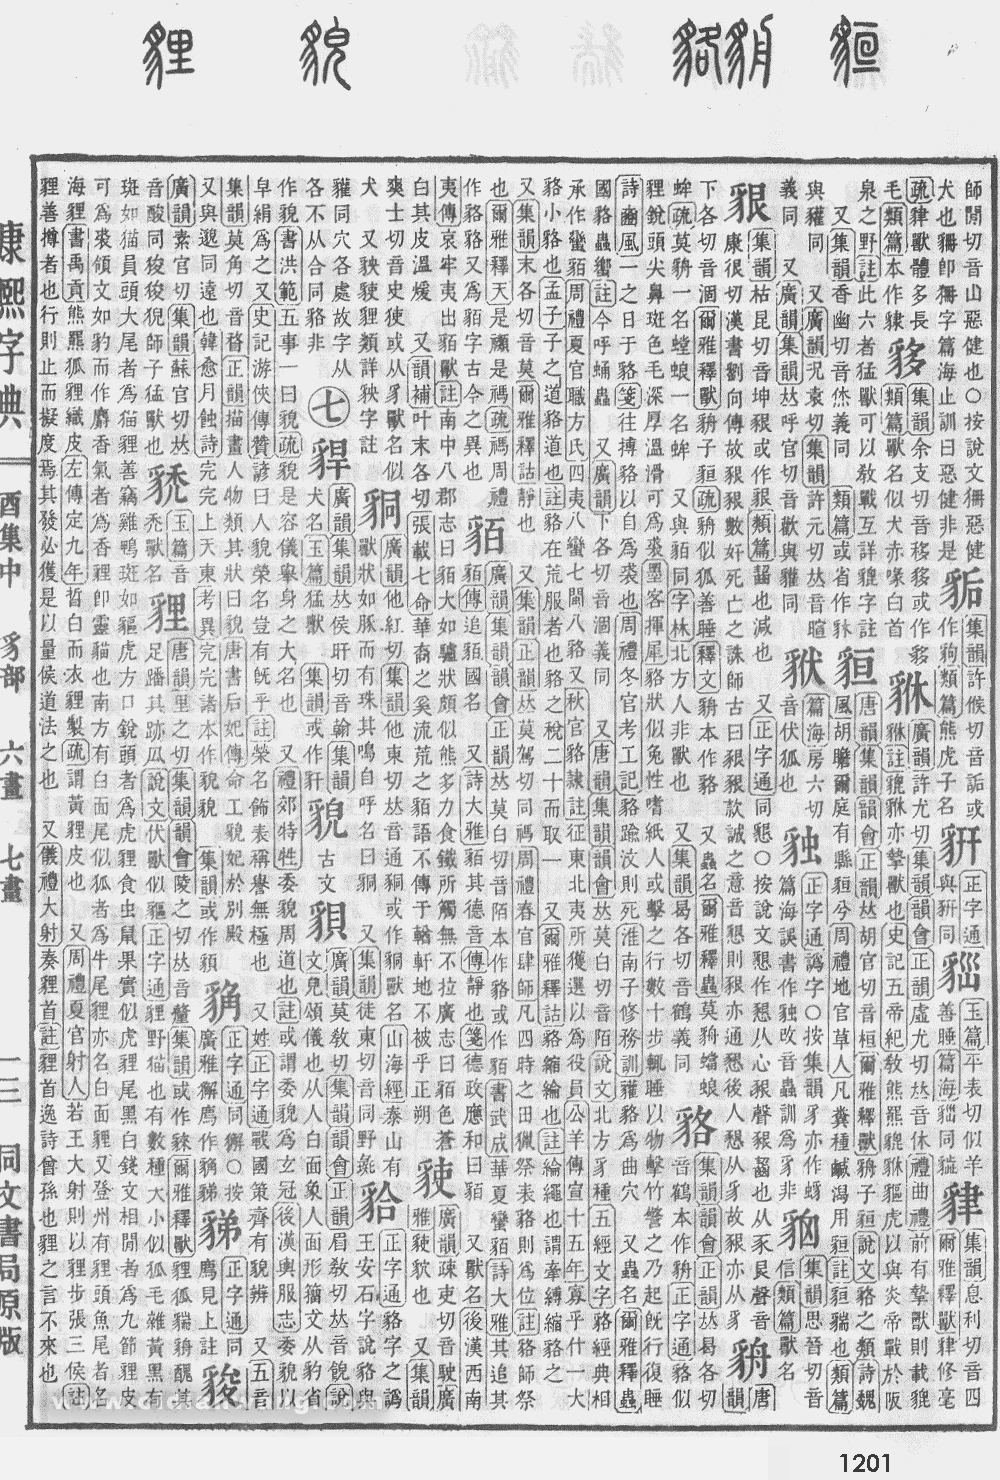 師閒切音山惡健也○按說文獮惡健
犬也獮卽獮字篇海止訓曰惡健非是
豿 集韻許候切音詬或
作狗類篇熊虎子名
豣 正字通
與豣同
玉篇平表切似羊
善睡篇海貓同
貄 集韻息利切音四
爾雅釋獸貄修毫
疏貄獸體多長
毛類篇本作䝪
貈 集韻余支切音移或作
類篇獸名似犬赤喙白首
貅 廣韻許尤切集韻韻會正韻虛尤切𠀤音休禮曲禮前有摯獸則載貔
貅註貔貅亦摯獸也史記五帝紀敎熊羆貔貅貙虎以與炎帝戰於阪
泉之野註此六者猛獸可以敎戰互詳貔字註
又集韻香幽切音烋義同 類篇或省作𧲸
貆 唐韻集韻韻會正韻𠀤胡官切音桓爾雅釋獸貈子貆說文貉之類詩魏
風胡瞻爾庭有縣貆兮周禮地官草人凡糞種鹹潟用貆註貆貒也類篇
與貛同 又廣韻況袁切集韻許元切𠀤音暄
義同 又廣韻集韻𠀤呼官切音歡與貛同
篇海房六切
音伏狐也
正字通譌字○按集韻豸亦作蜉
篇海誤書作独改音蟲訓爲豸非
集韻思晉切音
信類篇獸名
貇 集韻枯昆切音坤貇或作豤類篇齧也減也 又正字通同懇○按說文懇作懇从心貇聲豤齧也从豕艮聲音
康很切漢書劉向傳故豤豤數奸死亡之誅師古曰豤豤欵誠之意音懇則豤亦通懇後人懇从豸故豤亦从豸
貈 唐韻
下各切音涸爾雅釋獸貈子貆疏貈似狐善睡釋文貈本作貉 又蟲名爾雅釋蟲莫貈蟷蜋
蛑疏莫貈一名螳蜋一名蛑 又與貊同字林北方人非獸也 又集韻曷各切音鶴義同
貉 集韻韻會正韻𠀤曷各切
音鶴本作貈正字通貉似
貍銳頭尖鼻斑色毛深厚溫滑可爲裘墨客揮犀貉狀似兔性嗜紙人或擊之行數十步輒睡以物擊竹警之乃起旣行復睡
詩豳風一之日于貉箋往搏貉以自爲裘也周禮冬官考工記貉踰汶則死淮南子修務訓貛貉爲曲穴 又蟲名爾雅釋蟲
國貉蟲蠁註今呼蛹蟲 又廣韻下各切音涸義同 又唐韻集韻韻會𠀤莫白切音陌說文北方豸種五經文字貉經典相
承作蠻貊周禮夏官職方氏四夷八蠻七閩八貉又秋官貉隷註征東北夷所獲選以爲役員公羊傳宣十五年寡乎什一大
貉小貉也孟子子之道貉道也註貉在荒服者也貉之稅二十而取一 又爾雅釋詁貉縮綸也註綸繩也謂牽縛縮貉之
又集韻末各切音莫爾雅釋詁靜也 又集韻正韻𠀤莫駕切同禡周禮春官肆師凡四時之田獵祭表貉則爲位註貉師祭
也爾雅釋天是禷是禡疏禡周禮
作貉貉又作貊字古今之異也
貊 廣韻集韻韻會正韻𠀤莫白切音陌本作貉或作狛書武成華夏蠻貊詩大雅其追其
貊傳追貊戎狄國名 又詩大雅貊其德音傳靜也箋德政應和曰貊 又獸名後漢西南
夷傳哀牢夷出貊獸註南中八郡志曰貊大如驢狀頗似熊多力食鐵所觸無不拉廣志曰貊色蒼
白其皮溫煖 又韻補叶末各切張載七命華裔之夷流荒之貊語不傳于輶軒地不被乎正朔
䝘 廣韻疎吏切音駛廣
雅䝘貁也 又集韻
爽士切音史使或从豸獸名似
犬 又䝘貍類詳貁字註
䝑 廣韻他紅切集韻他東切𠀤音通狪或作䝑獸名山海經泰山有
獸狀如豚而有珠其鳴自呼名曰䝑 又集韻徒東切音同野彘
正字通貉字之譌
王安石字說貉與
貛同穴各處故字从
各不从合合同豁非
七
䝓 廣韻集韻𠀤侯旰切音翰集韻
犬名玉篇猛獸 集韻或作犴
貌 古文 皃 廣韻莫敎切集韻韻會正韻眉敎切𠀤音㒵說
文皃頌儀也从人白面象人面形籀文从豹省
作貌書洪範五事一曰貌疏貌是容儀舉身之大名也 又禮郊特牲委貌周道也註或謂委貌爲玄冠後漢輿服志委貌以
皁絹爲之又史記游俠傳贊諺曰人貌榮名豈有旣乎註榮名飾表稱譽無極也 又姓正字通戰國策齊有貌辨 又五音
集韻莫角切音瞀正韻描畫人物類其狀曰貌唐書后妃傳命工貌妃於別殿
又與邈同遠也韓愈月蝕詩完完上天東考異完完諸本作貌貌 集韻或作䫉
正字通同獬○按
廣雅獬廌作䝱䝱
正字通同
廌見上註
䝜 廣韻素官切集韻蘇官切𠀤
音酸同狻狻猊師子猛獸也
玉篇音
禿獸名
貍 唐韻里之切集韻韻會陵之切𠀤音釐集韻或作狸爾雅釋獸貍狐貒貈醜其
足蹯其跡𠫤說文伏獸似貙正字通貍野猫也有數種大小似狐毛雜黃黑有
斑如猫員頭大尾者爲猫貍善竊雞鴨斑如貙虎方口銳頭者爲虎貍食虫鼠果實似虎貍尾黑白錢文相閒者爲九節貍皮
可爲裘領文如豹而作麝香氣者爲香貍卽靈貓也南方有白面尾似狐者爲牛尾貍亦名白面貍又登州有貍頭魚尾者名
海貍書禹貢熊羆狐貍織皮左傳定九年晳白而衣貍製疏謂黃貍皮也 又周禮夏官射人若王大射則以貍步張三侯註
貍善搏者也行則止而擬度焉其發必獲是以量侯道法之也 又儀禮大射奏貍首註貍首逸詩曾孫也貍之言不來也
康熙字典 酉集中 豸部 六畫 七畫 一三 同文書局原版
1201